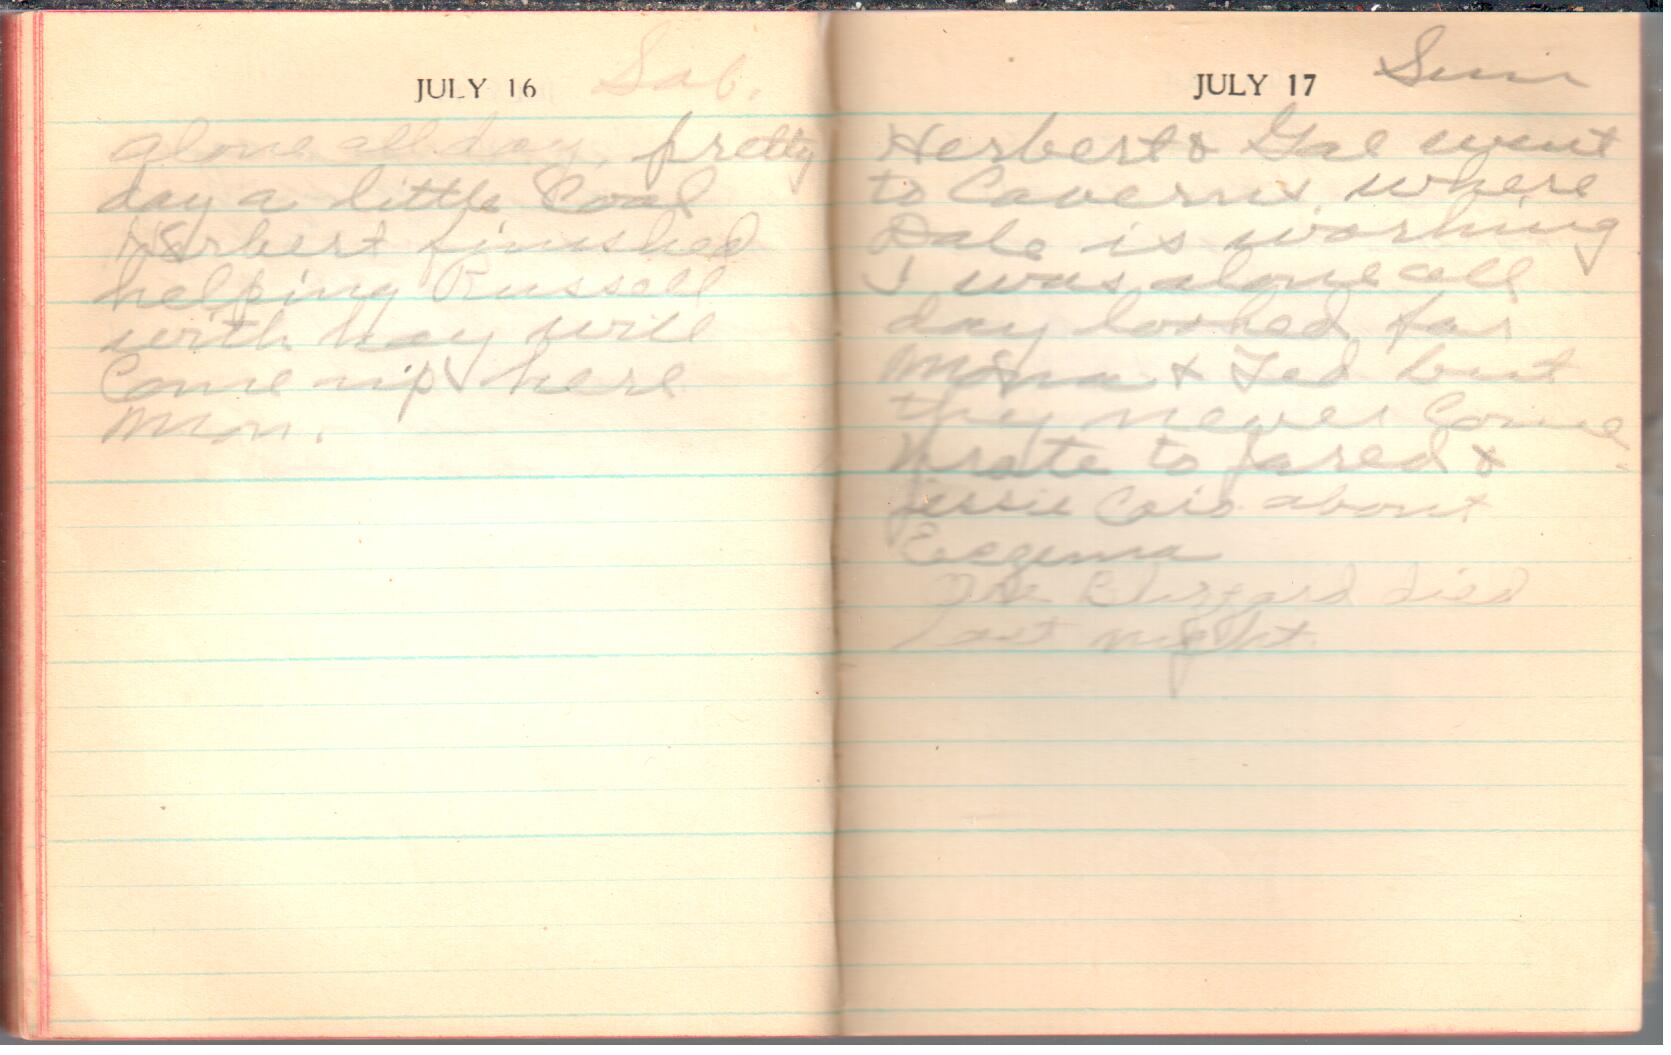 JULY 16 Sat.
alone all day, pretty
day a little Cool
Herbert finished
helping Russell
with hay will
Come up here
Mon.
JULY 17 Sun
Herbert & Gae went
to Caverns where
Dale is working
I was alone all
day looked for
Mona & Ted but
they never Come
Wrote to Jared &
Jessie about
Eczema
Blizzard died
last night.